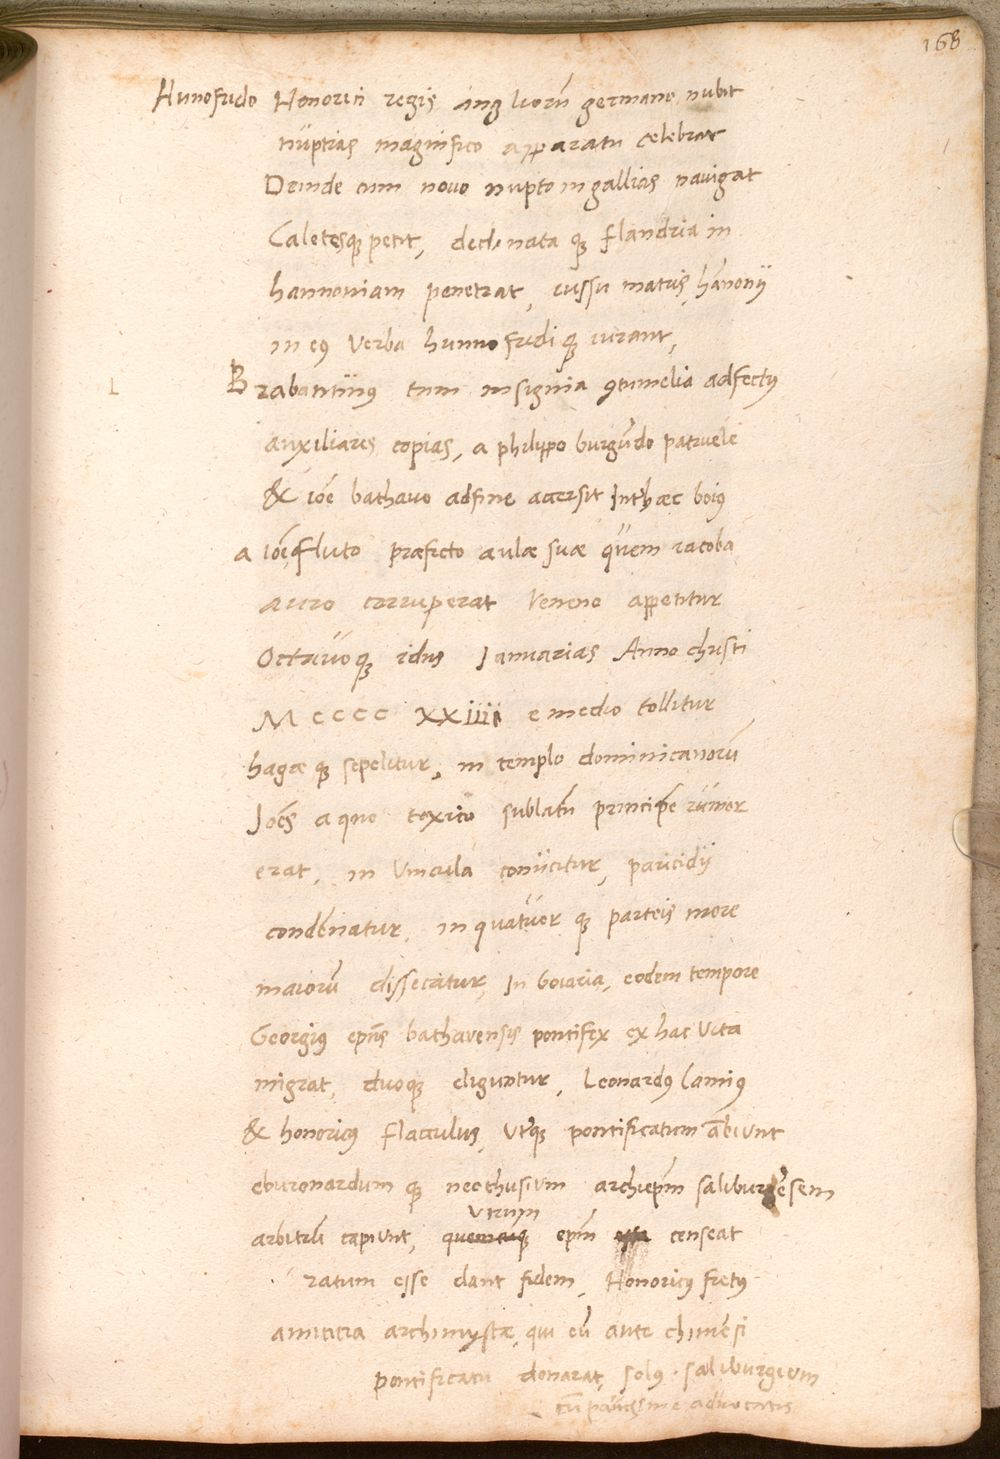 168
Hunofrido Honorici regis angliorū germano nubit
nuptias magnifico apparatu celebrat
Deinde cum novo nupto in gallias navigat
Caletesqȝ petit, declinata qȝ flandria in
hannoniam penetrat, iussu matris, hānonij
in eiꝰ verba hunnofridi qȝ iurant,
L
Brabantinꝰ tum insignia ꝯtumelia adfectꝰ
auxiliares copias, a philippo burgūdo patruele
& ioē bathavo adfine accersit Inthaec boiꝰ
a ioē Fluto præfecto aulæ suæ quem iacoba
auro corruperat Veneno appetitur
Octavo qȝ idus Ianuarias Anno christi
M cccc xxiiii e medio tollitur
hagæ qȝ sepelitur, in templo dominicanorū
Joēs a quo toxico sublatū principē rumor
erat, in vincula coniicitur, paricidij
condēnatur, in quatuor qȝ parteis more
maiorū dissecatur, In boiaria, eodem tempore
Georgiꝰ epūs bathavensis pontifex ex hac vita
migrat, duoqȝ eliguntur, Leonardꝰ Lamiꝰ
& honoricꝰ flacculus, utqȝ pontificatum ābiunt
eburonardum qȝ neothusium archiepm̄ saliburgēsem
utrum
arbitrū capiunt, quemcuqȝ epm̄ esse censeat
ratum esse dant fidem, Honoricꝰ fretꝰ
amicitia archimystæ, qui eū ante chimēsi
pontificatu donarat, solꝰ saliburgium
cū paucissimis advocatis